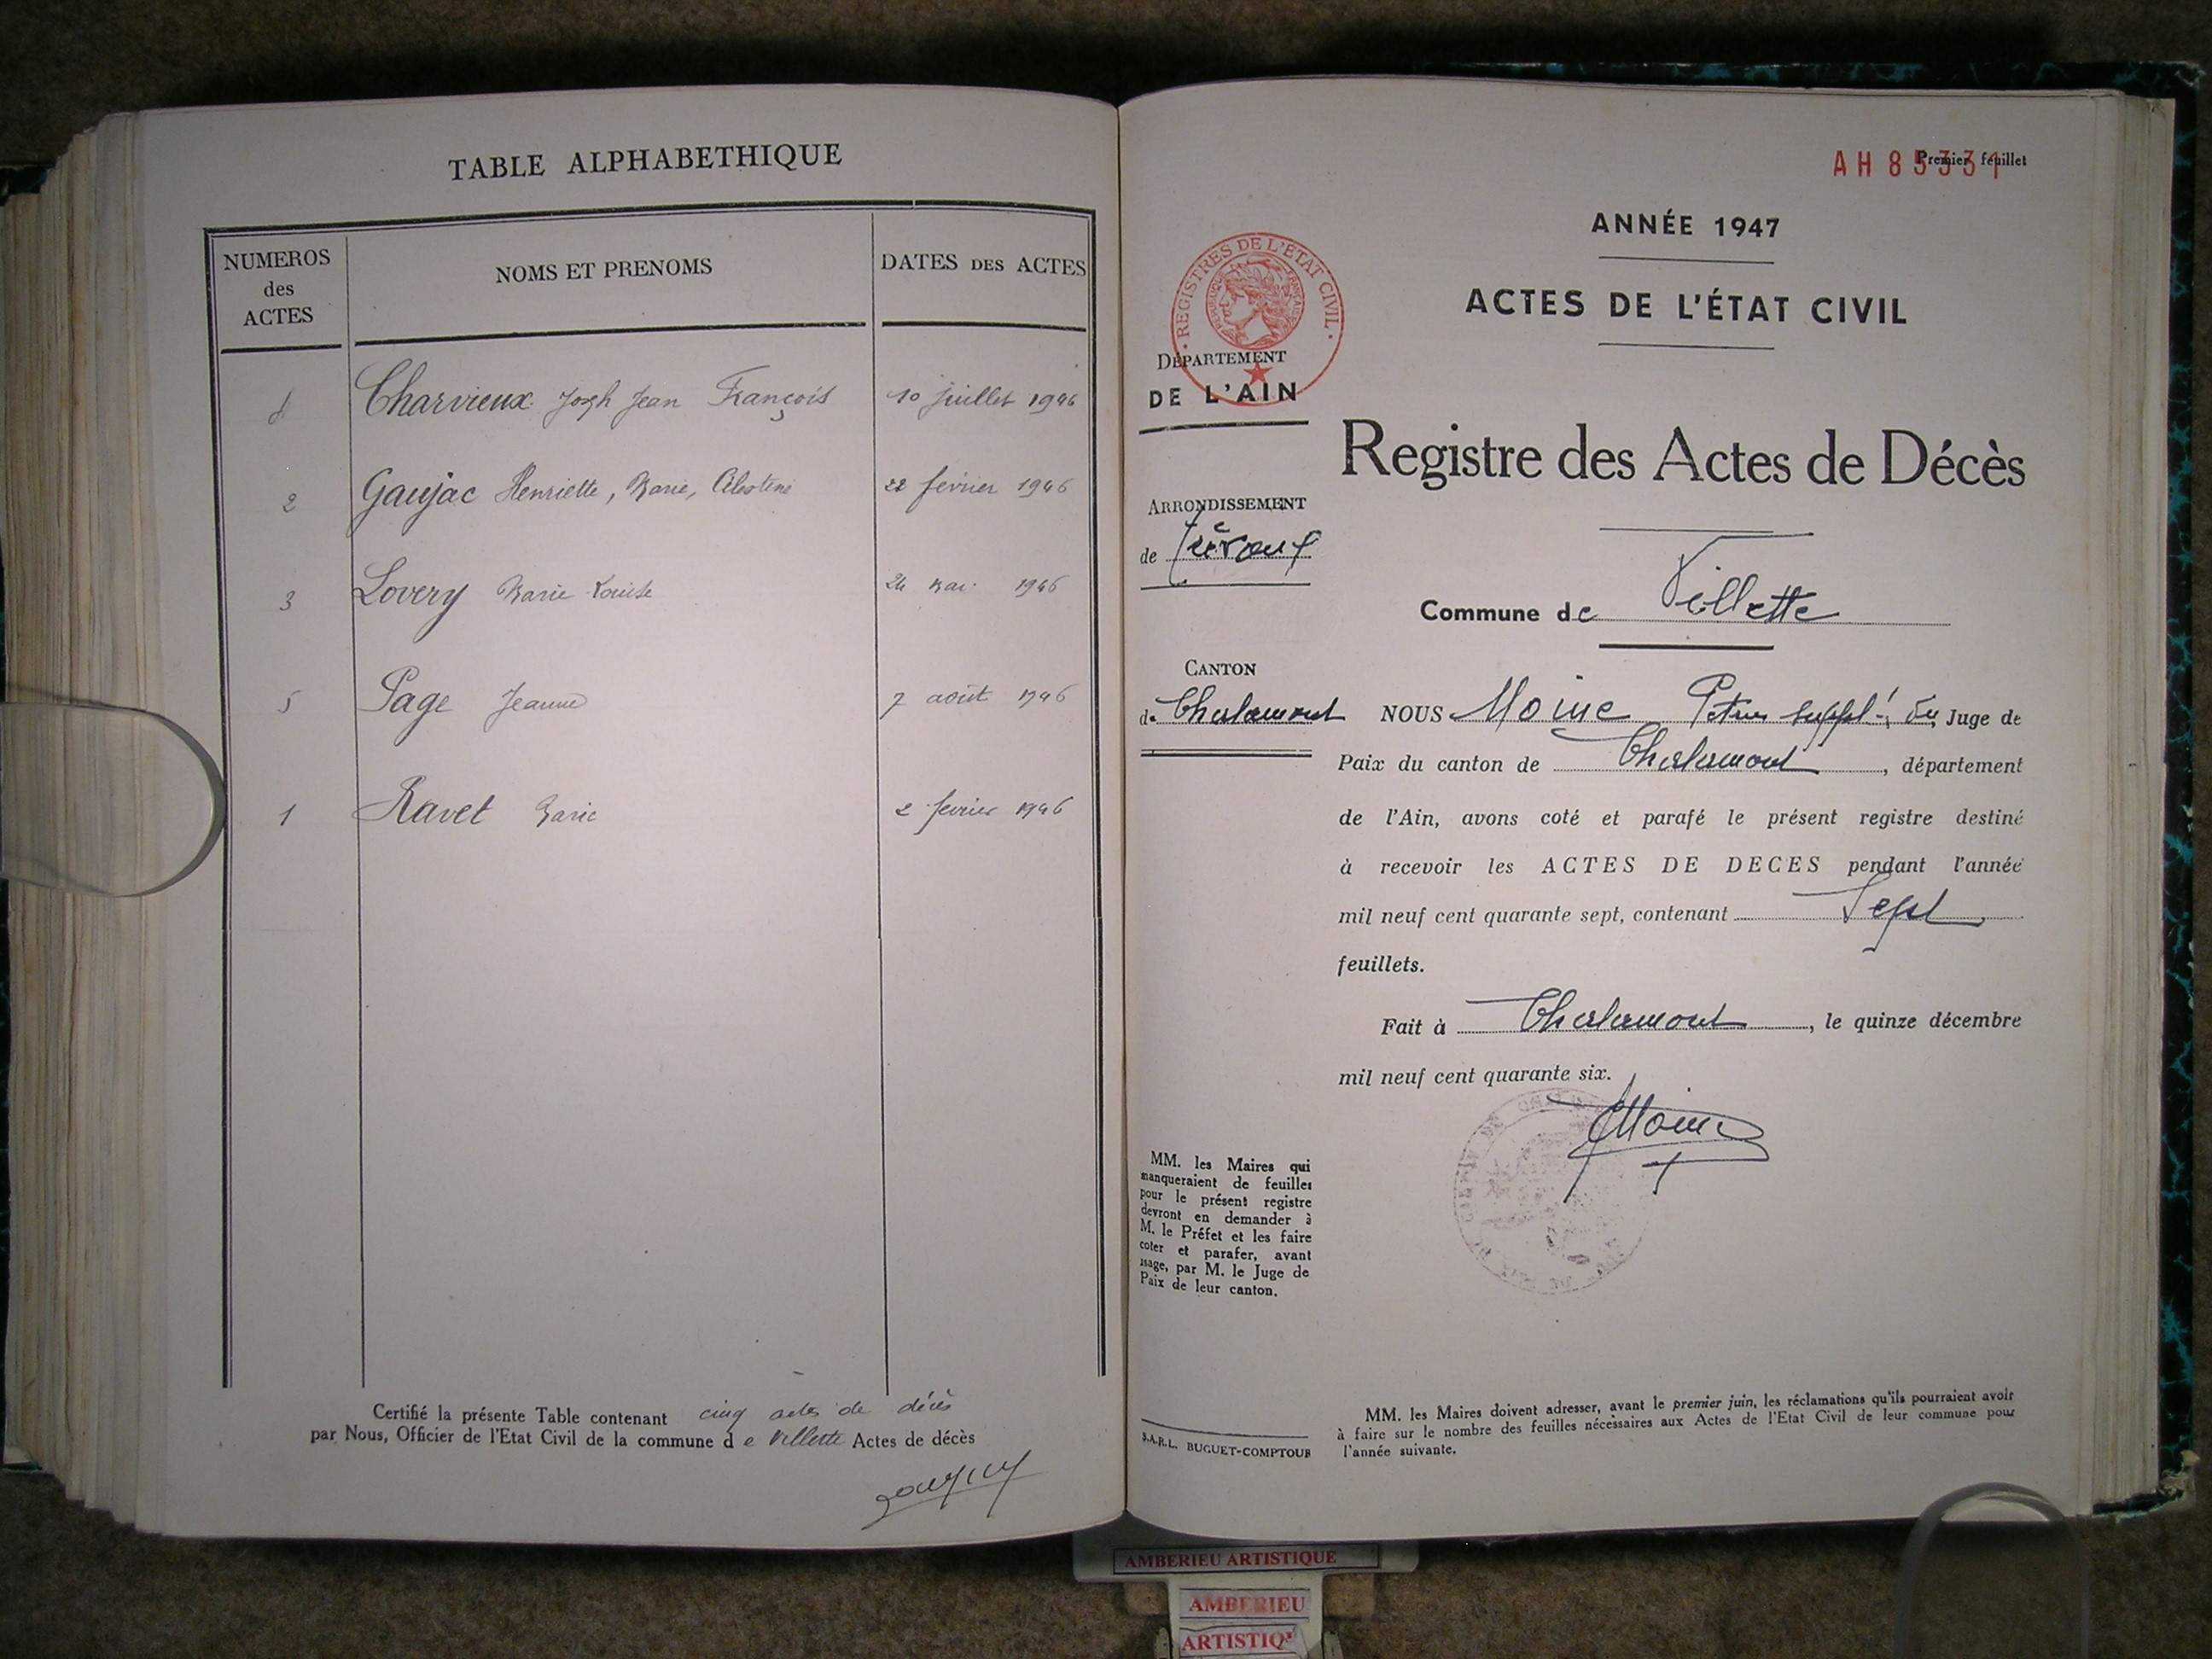 TABLE ALPHABETHIQUE
NUMEROS
des
ACTES
NOMS ET PRENOMS
DATES DES ACTES
4 Charvieux Joseph Jean François 10 juillet 1946
2 Gaujac Henriette, Marie, Célestine 22 février 1946
3 Lovery Marie Louise 24 mai 1946
5 Page Jeanne 7 août 1946
1 Ravet Marie 2 février 1946
Certifié la présente Table contenant cinq actes de décès
par Nous, Officier de l'Etat Civil de la commune de Villette Actes de décès
AH 85331
Premier feuillet
ANNÉE 1947
ACTES DE L'ÉTAT CIVIL
REGISTRES DE L'ÉTAT CIVIL
RÉPUBLIQUE FRANÇAISE
DÉPARTEMENT
DE L'AIN
Registre des Actes de Décès
ARRONDISSEMENT
de Trévoux
Commune de Villette
CANTON
de Chalamont
NOUS Moine Petrus suppl' du Juge de
Paix du canton de Chalamont, département
de l'Ain, avons coté et parafé le présent registre destiné
à recevoir les ACTES DE DECES pendant l'année
mil neuf cent quarante sept, contenant Sept
feuillets.
Fait à Chalamont, le quinze décembre
mil neuf cent quarante six.
Moine
MM. les Maires qui
manqueraient de feuilles
pour le présent registre
devront en demander à
M. le Préfet et les faire
coter et parafer, avant
usage, par M. le Juge de
Paix de leur canton.
S.A.R.L. BUGUET-COMPTOUR
MM. les Maires doivent adresser, avant le premier juin, les réclamations qu'ils pourraient avoir
à faire sur le nombre des feuilles nécessaires aux Actes de l'Etat Civil de leur commune pour
l'année suivante.
AMBERIEU ARTISTIQUE
AMBERIEU
ARTISTIQ